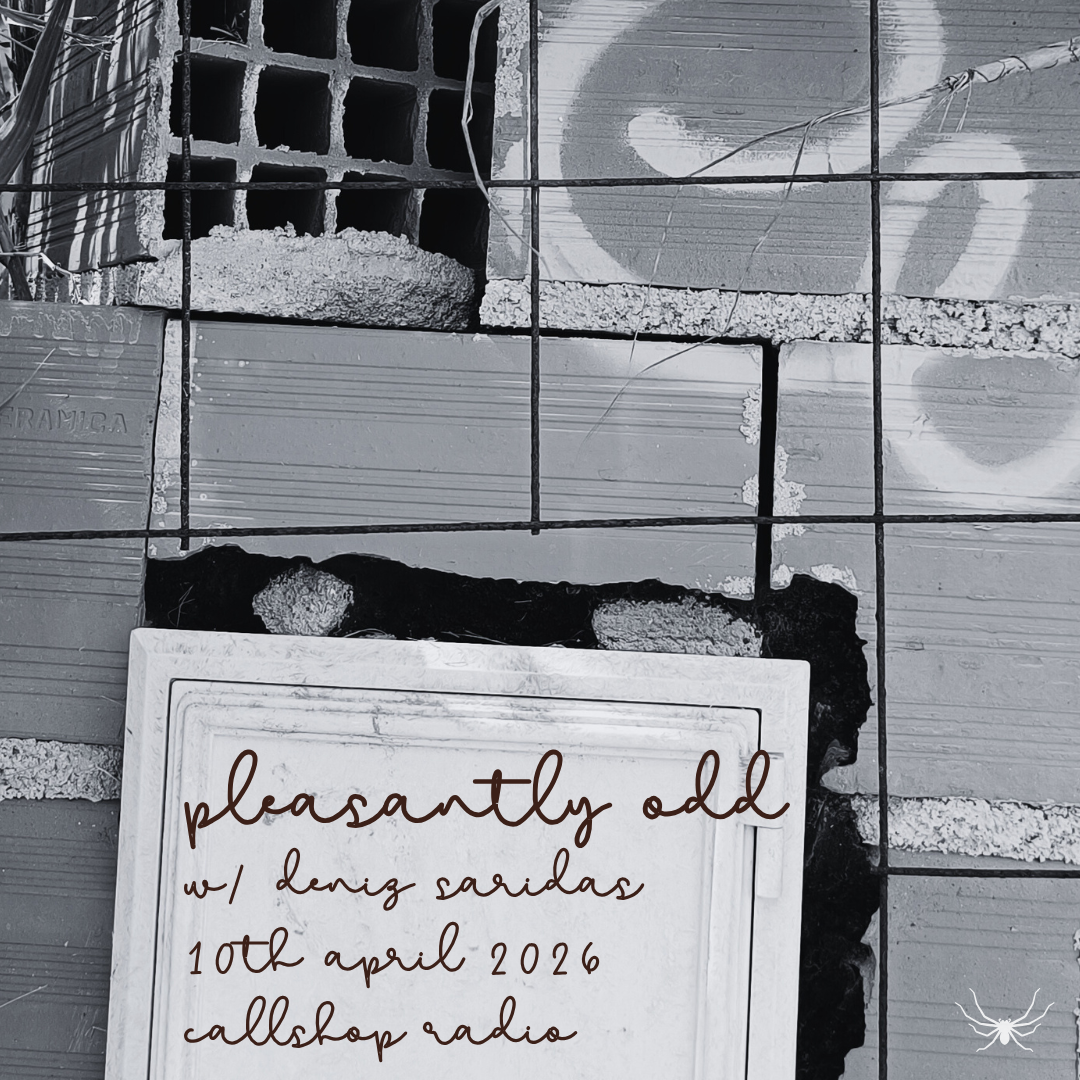 CERAMICA
pleasantly odd
w/ deniz saridas
10th april 2026
callshop radio